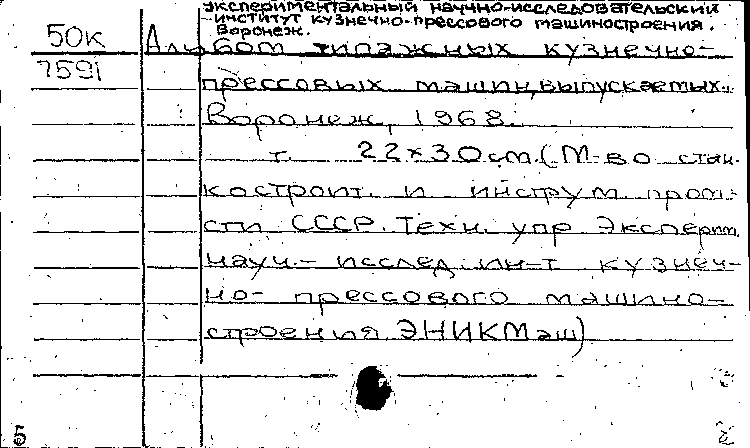 экспериментальный научно-исследовательский
институт кузнечно-прессового машиностроения.
Воронеж.
50К Альбом типажных кузнечно-
7591 прессовых машин, выпускаемых..
Воронеж, 1968.
т. 22х30см. (М-во стан-
костроит. и инструм. пром-
сти СССР. Техн. упр. Эксперим.
науч.- исслед. ин-т кузнеч-
но- прессового машино-
строения ЭНИКМаш)
5